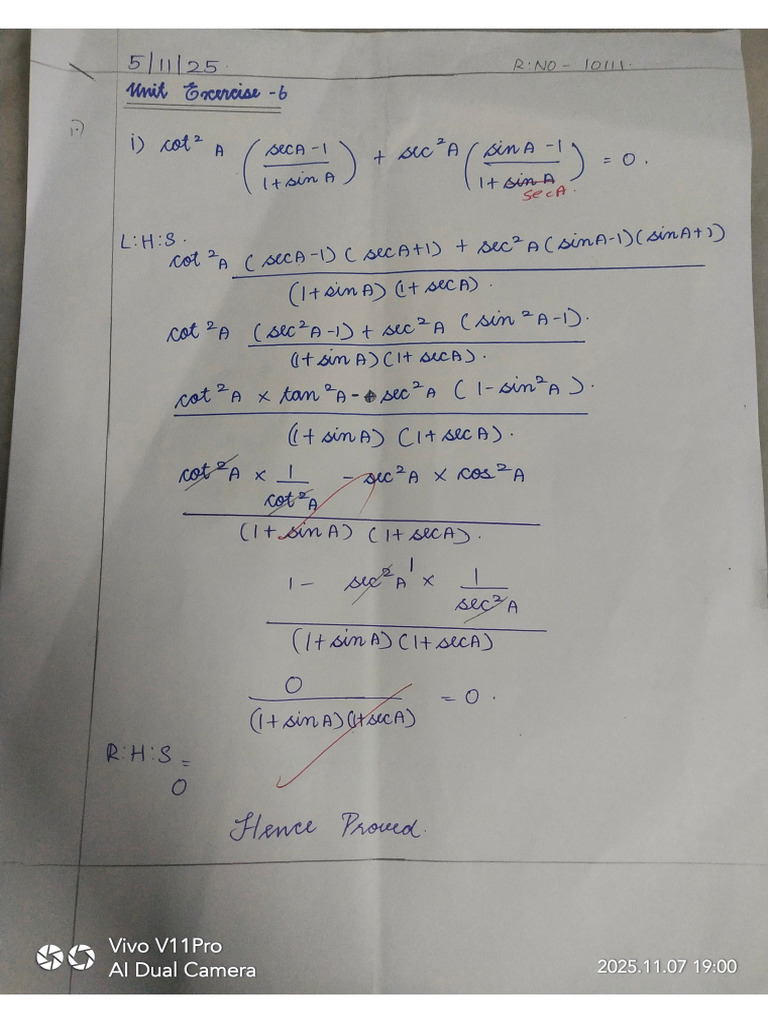 5/11/25. R:NO - 10111.
Unit Exercise - 6
1.)
i) cot² A (secA-1 / 1+sin A) + sec²A (sinA-1 / 1+sinA) = 0.
secA.
L:H:S.
cot²A (secA-1)(secA+1) + sec²A(sinA-1)(sinA+1)
(1+sinA)(1+secA).
cot²A (sec²A-1) + sec²A (sin²A-1).
(1+sinA)(1+secA).
cot²A × tan²A - sec²A (1-sin²A).
(1+sinA) (1+secA).
cot²A × 1/cot²A - sec²A × cos²A
(1+sinA) (1+secA).
1 - sec²A 1 × 1/sec²A
(1+sinA)(1+secA)
0 / (1+sinA)(1+secA) = 0.
R:H:S =
0
Hence Proved.
Vivo V11Pro
AI Dual Camera 2025.11.07 19:00